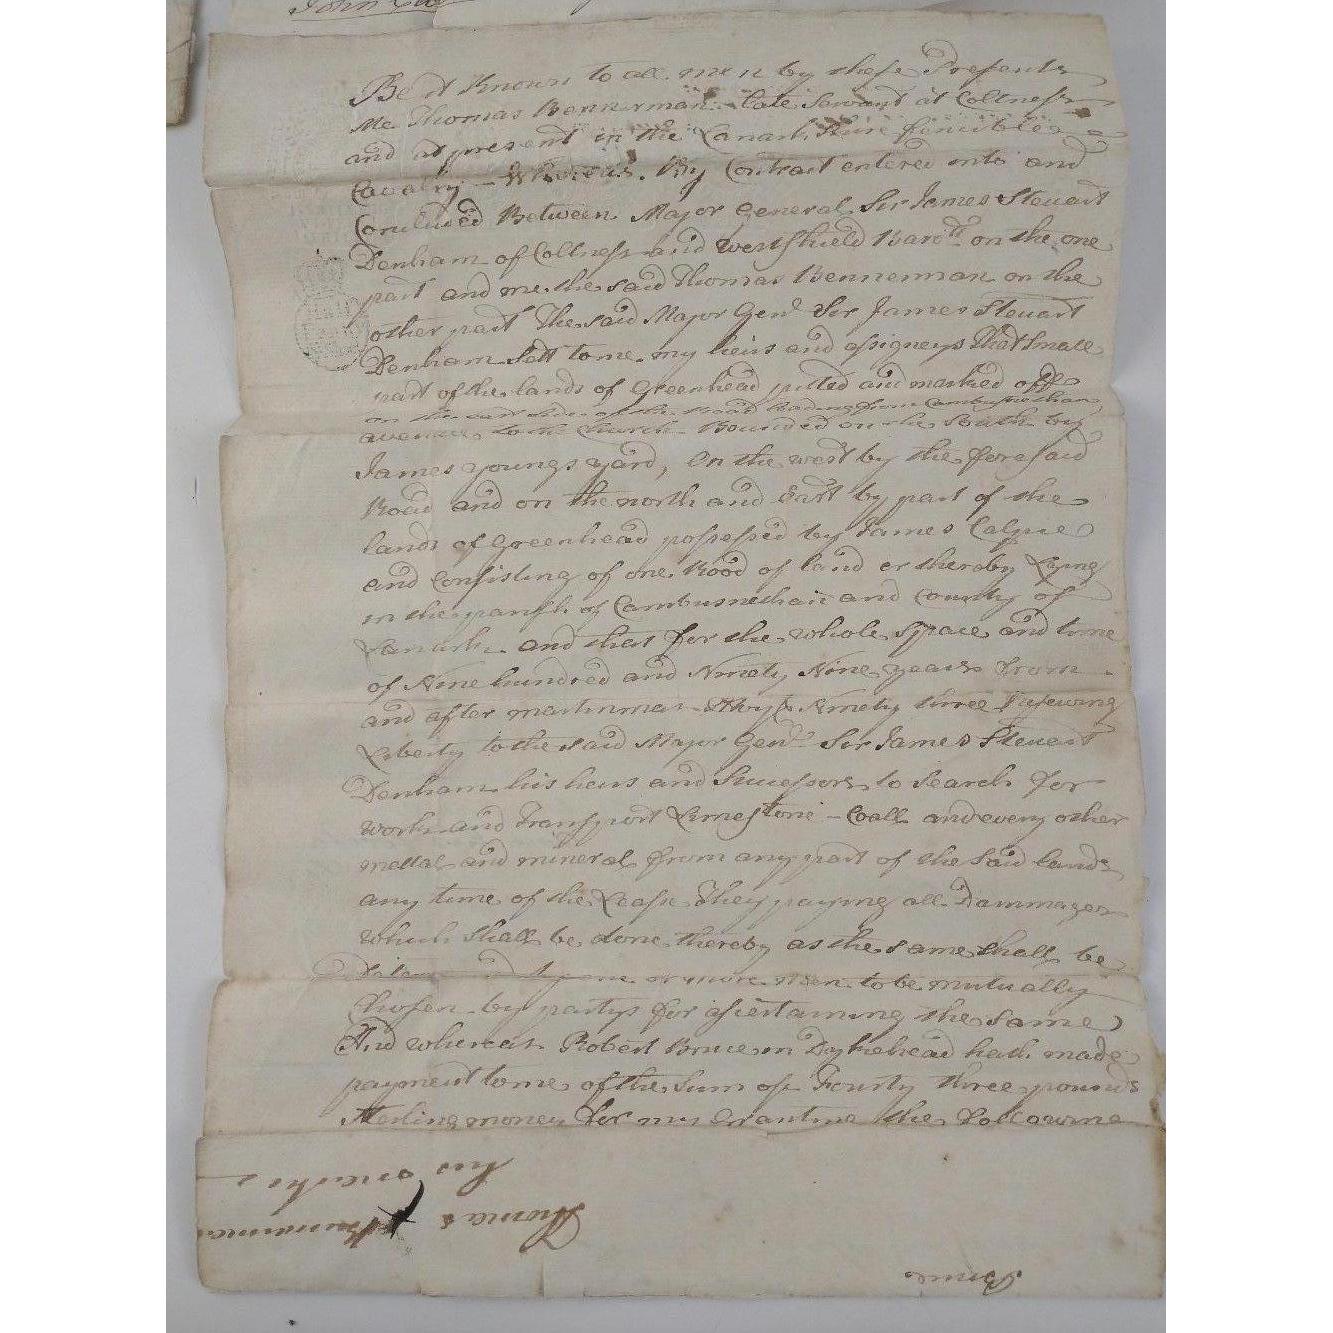 John
Be it Known to all men by these Presents
Me Thomas Bennerman late Servant at Coltness
and at present in the Lanark Shire fencible
Cavalry – Whereas By Contract entered into and
Concluded Between Major General Sir James Steuart
Denham of Coltness and Westshield Baro.tt on the one
part and me the said Thomas Bennerman on the
other part The said Major Gen.l Sir James Steuart
Denham Sett to me my heirs and assigneys That Small
part of the lands of Greenhead pitted and marked off
on the east side of the Road leading from Cambusnethan
avenue to the Church Bounded on the South by
James Youngs yard, On the west by the foresaid
Road and on the north and East by part of the
lands of Greenhead possess'd by James
and Consisting of one Rood of land or thereby Lying
in the parish of Cambusnethan and County of
Lanark and that for the whole space and time
of Nine hundred and Ninety Nine years from
and after martinmas Ninety three
Liberty to the said Major Gen.l Sir James Steuart
Denham his heirs and Successors to Search for
work and Transport Limestone – Coall and every other
mettal and mineral from any part of the said lands
any time of the Lease They paying all Dammages
which shall be done thereby as the same shall be
or more men to be mutually
Chosen by partys for assertaining the same
And whereas Robert Bruce in Dykehead hath made
payment to me of the Sum of Fourty three pounds
Sterling money for my Granting the following
his mark
Thomas Bennerman
Bruce